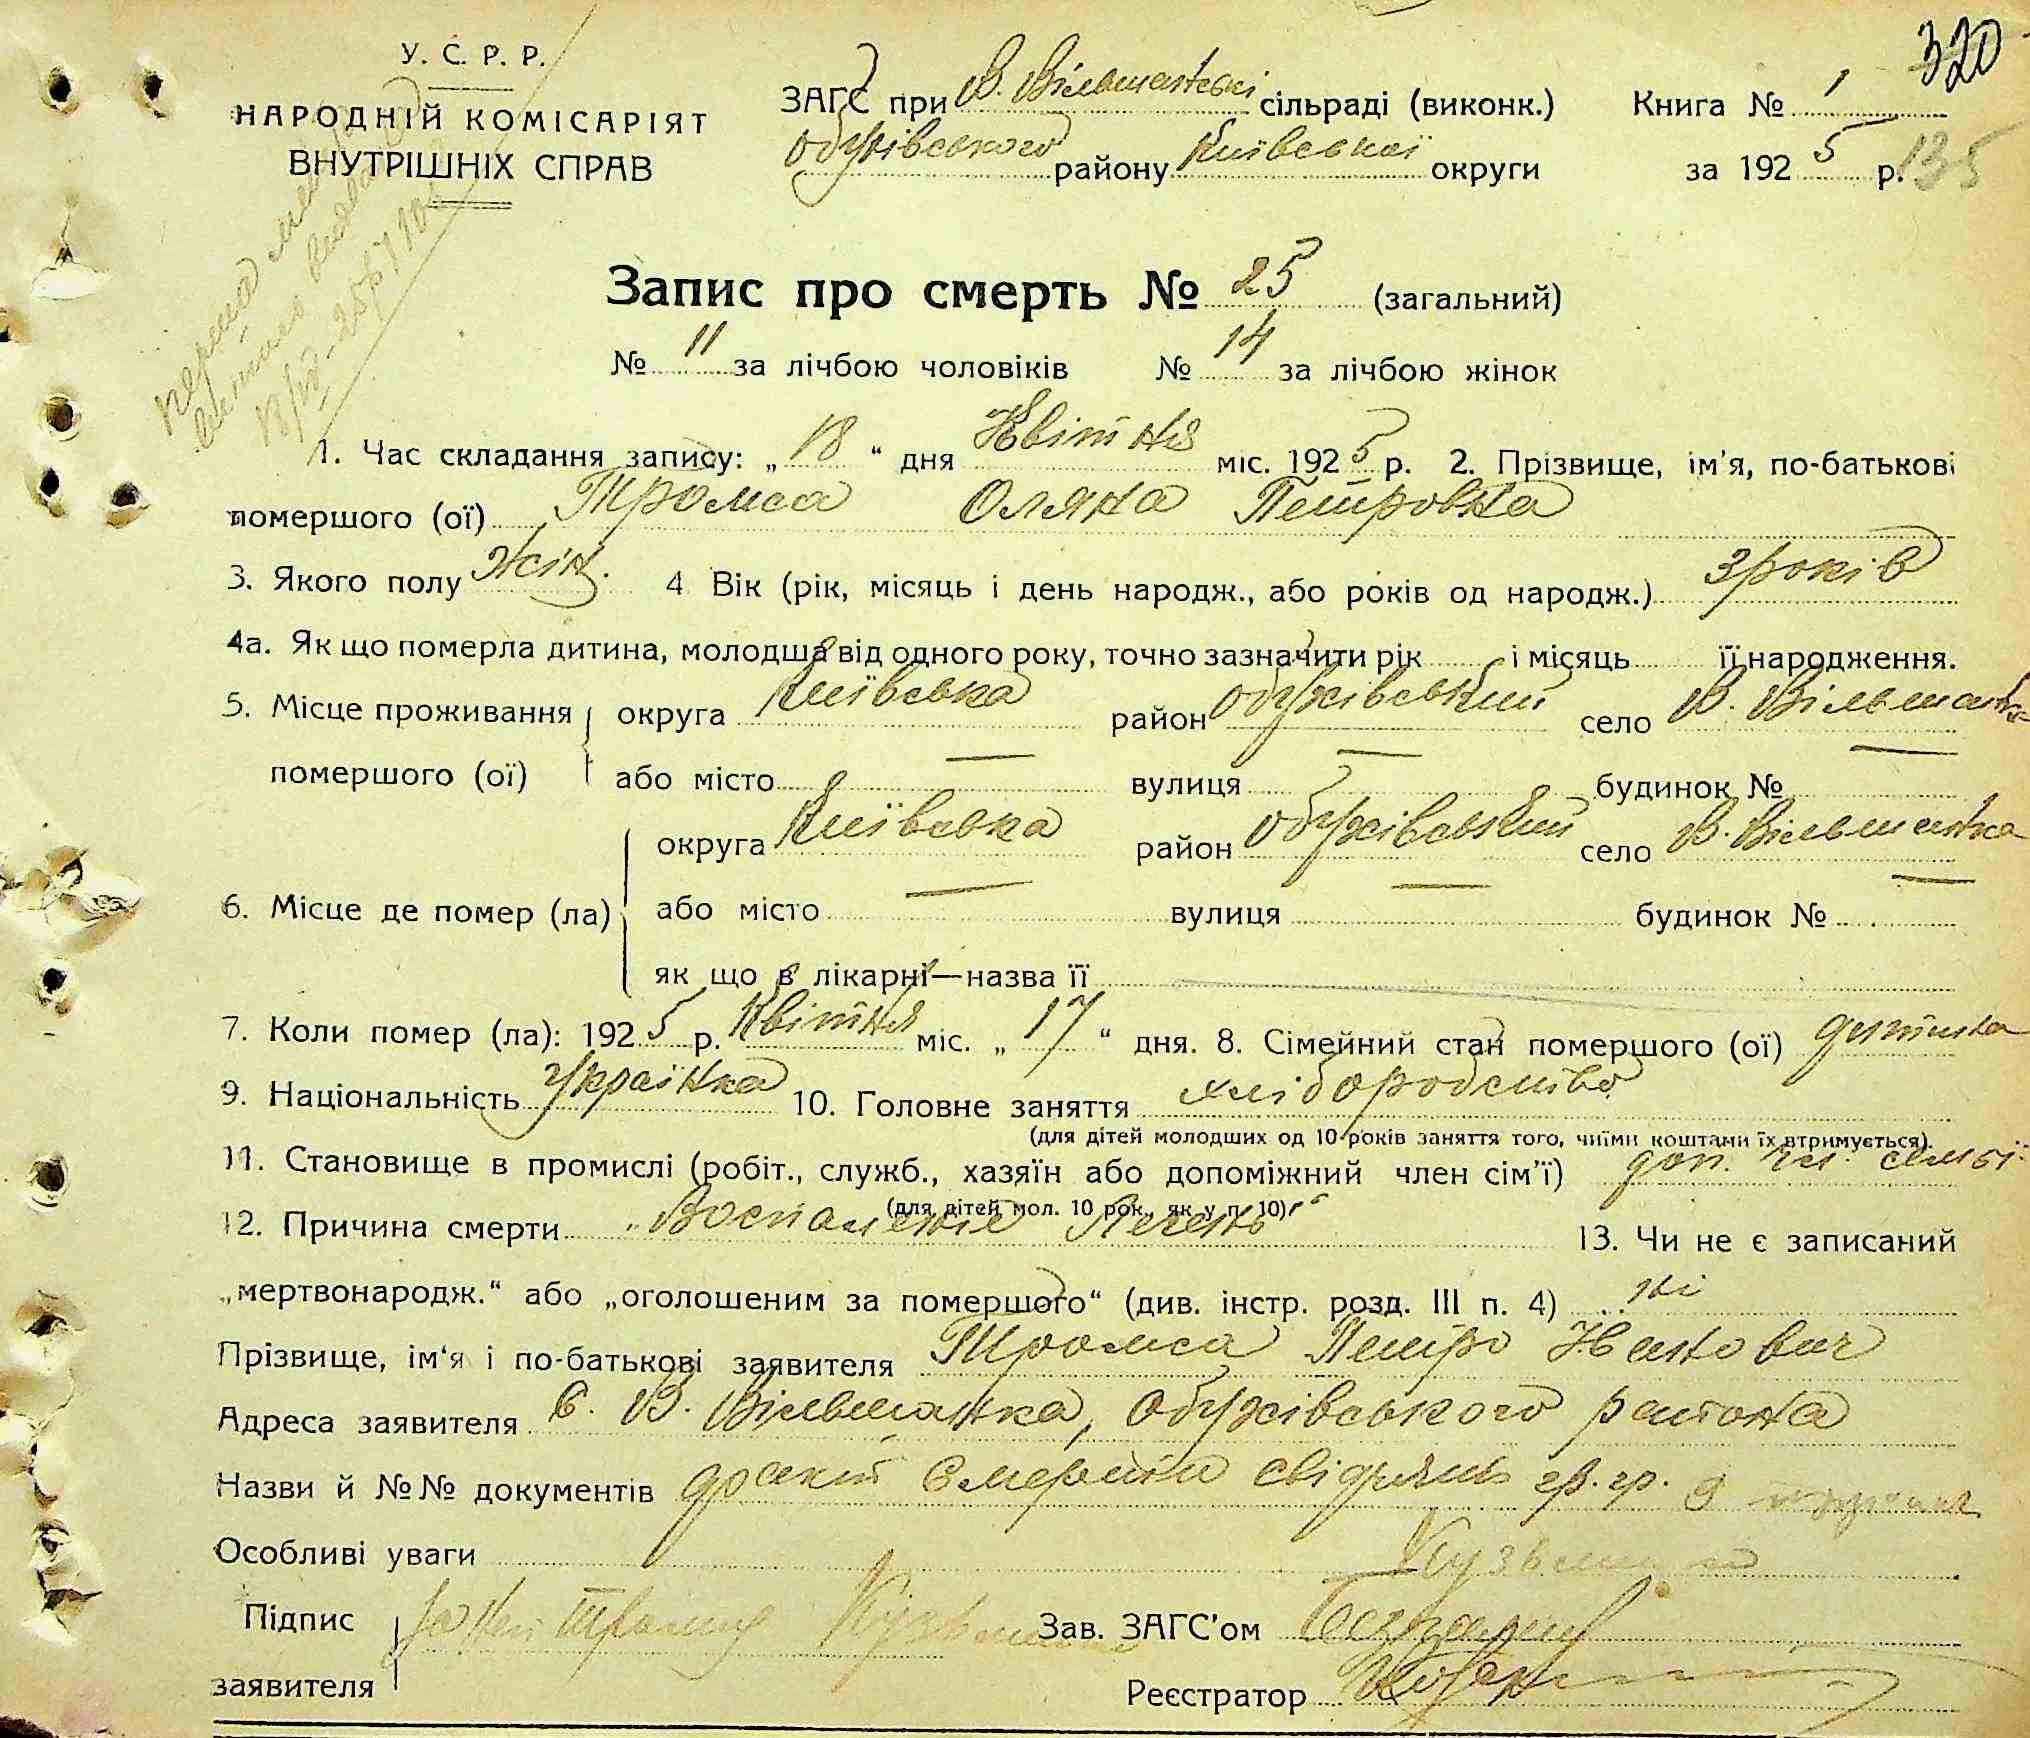 320
У. С. Р. Р.
НАРОДНІЙ КОМІСАРІЯТ
ВНУТРІШНІХ СПРАВ
ЗАГС при В. Вільшанскі сільраді (виконк.) Книга № 1
обухівського району Київської округи за 1925 р. 135
Запис про смерть № 25 (загальний)
№ 11 за лічбою чоловіків № 14 за лічбою жінок
1. Час складання запису: „18“ дня Квітня міс. 1925 р. 2. Прізвище, ім'я, по-батькові
помершого (ої) Тромса Оляна Петровна
3. Якого полу Жін. 4 Вік (рік, місяць і день народж., або років од народж.) 3 років
4а. Як що померла дитина, молодша від одного року, точно зазначити рік і місяць її народження.
5. Місце проживання округа Київська район обухівський село В. Вільшанка
помершого (ої) або місто — вулиця — будинок № —
округа Київська район обухівський село В. Вільшанка
6. Місце де помер (ла) або місто — вулиця — будинок № —
як що в лікарні—назва її
7. Коли помер (ла): 1925 р. Квітня міс. „17“ дня. 8. Сімейний стан помершого (ої) детина
9. Національність Українка 10. Головне заняття хліборобство
(для дітей молодших од 10 років заняття того, чиїми коштами їх втримується).
11. Становище в промислі (робіт., служб., хазяїн або допоміжний член сім'ї) доп. чл. семьї
(для дітей мол. 10 рок., як у п. 10)
12. Причина смерти „Воспаление Печень“ 13. Чи не є записаний
„мертвонародж.“ або „оголошеним за помершого“ (див. інстр. розд. III п. 4) ні
Прізвище, ім'я і по-батькові заявителя Тромса Петро Иванович
Адреса заявителя С. В. Вільшанка, Обухівського района
Назви й №№ документів смерти свідчять гр. гр.
Особливі уваги
Підпис
заявителя
Зав. ЗАГС'ом
Реєстратор